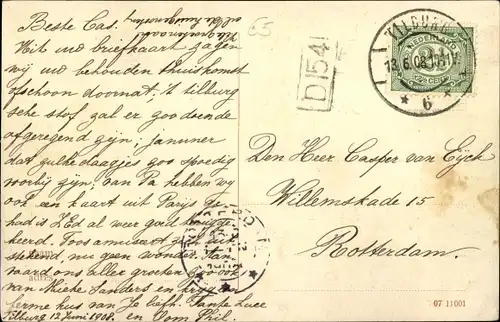 Beste Cas.
Uit uw briefkaart zagen
wij uw behouden thuiskomst
ofschoon doornat; 't tilburg
sche stof zal er goed
afgeregend zijn; jammer
dat zulke daagjes zoo spoedig
voorbij zijn; van Pa hebben wij
ook een kaart uit Parijs
had is ZEd al weer goed
keerd. Toos amuseert zich uit
stekend, nu geen wonder. Van
ons allen groeten zoo ook
van Mieke Sanders en krijg een
ferme kus van Je liefh. Tante Luce
Tilburg 12 Juni 1908. en Oom Phil.
65
D154
TILBURG
13.6.08
6
NEDERLAND
2½
CENT
Den Heer Casper van Eijck
Willemskade 15
Rotterdam.
07 11001